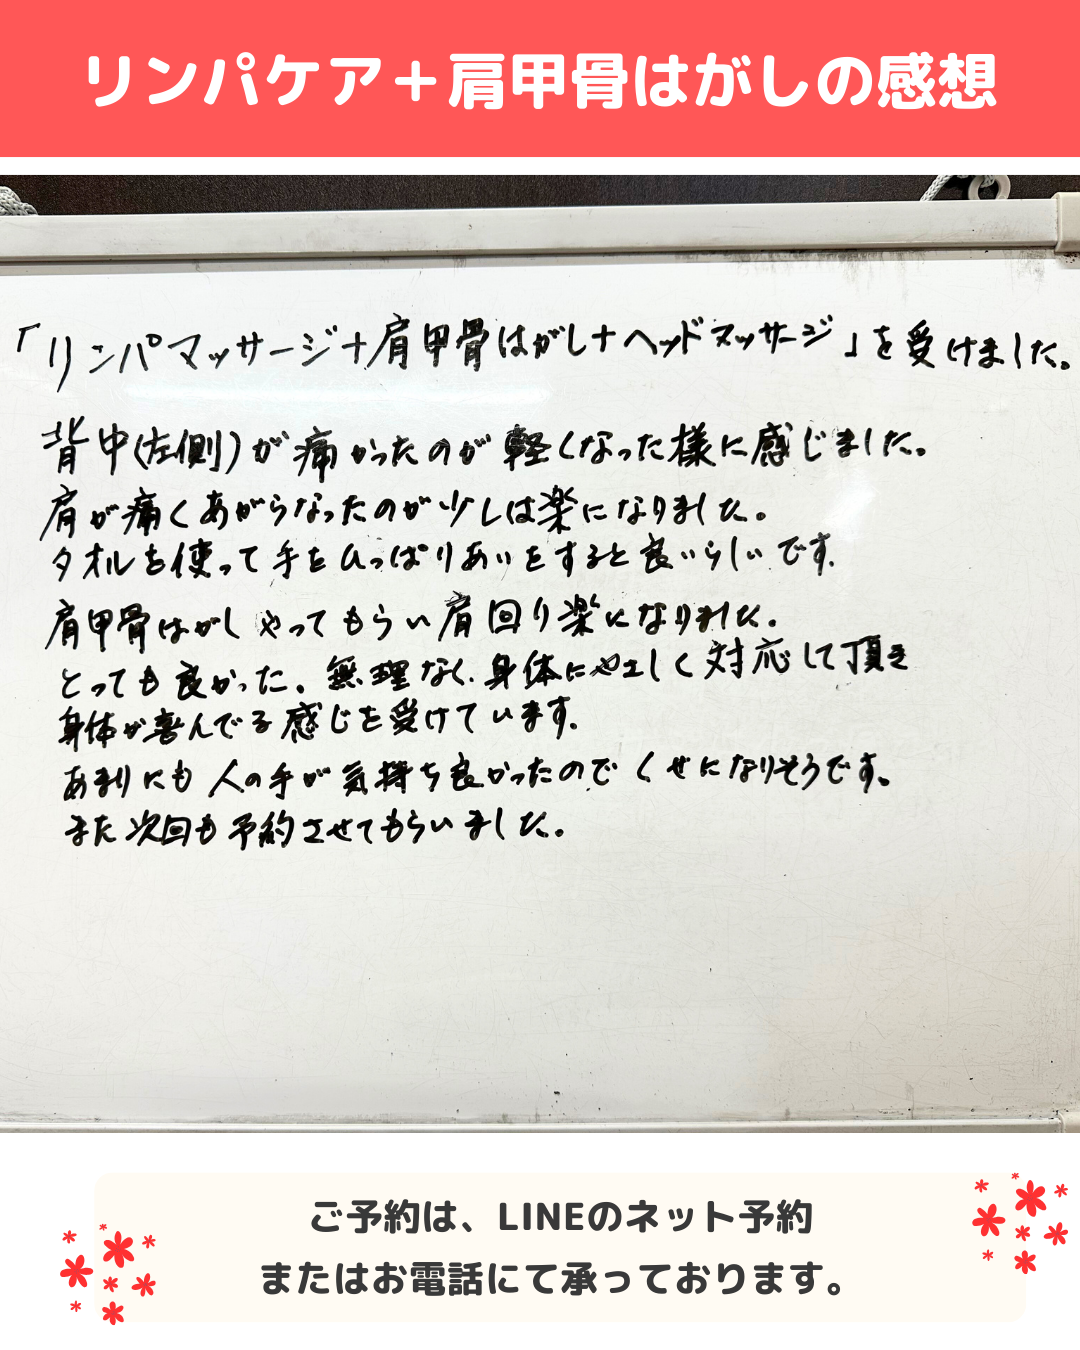 リンパケア＋肩甲骨はがしの感想
「リンパマッサージ＋肩甲骨はがし＋ヘッドマッサージ」を受けました。
背中(左側)が痛かったのが軽くなった様に感じました。
肩が痛くあがらなったのが少しは楽になりました。
タオルを使って手をひっぱりあいをすると良いらしいです。
肩甲骨はがしやってもらい肩回り楽になりました。
とっても良かった。無理なく、身体にやさしく対応して頂き
身体が喜んでる感じを受けています。
あまりにも人の手が気持ち良かったのでくせになりそうです。
また次回も予約させてもらいました。
ご予約は、LINEのネット予約
またはお電話にて承っております。